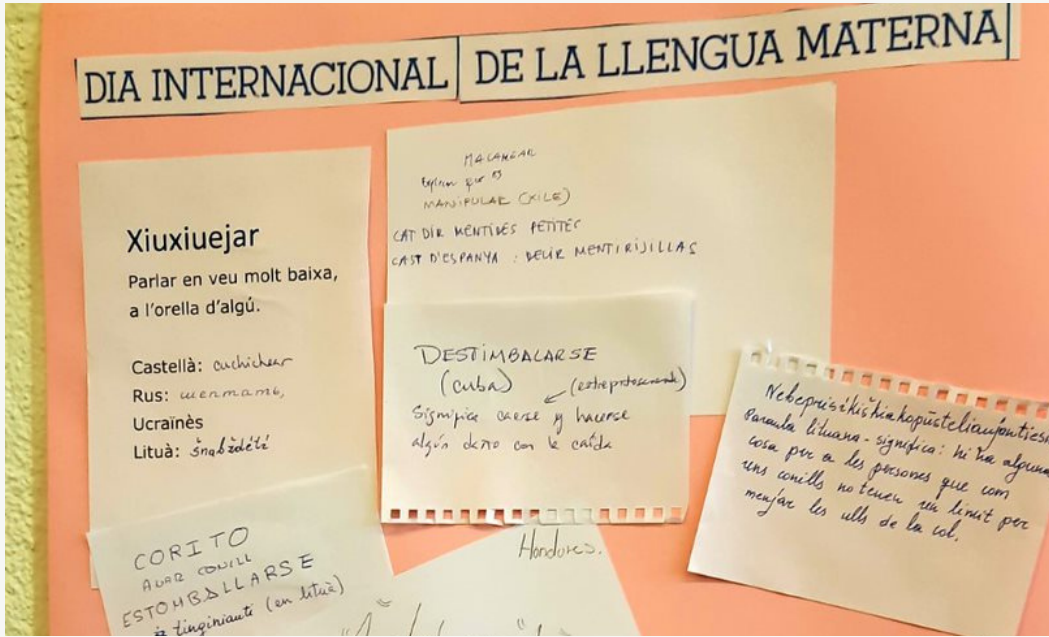 DIA INTERNACIONAL DE LA LLENGUA MATERNA
Xiuxiuejar
Parlar en veu molt baixa,
a l'orella d'algú.
Castellà: cuchichear
Rus: шептать,
Ucraïnès
Lituà: šnabždėti
MACANEAR
MANIPULAR (XILE)
CAT DIR MENTIDES PETITES
CAST D'ESPANYA : DECIR MENTIRIJILLAS
DESTIMBALARSE
(cuba)
(estrepitosamente)
Significa caerse y hacerse
algún daño con la caída
Paraula lituana - significa: hi ha alguna
cosa per a les persones que com
uns conills no tenen un límit per
menjar les ulls de la col.
CORITO
ANAR CONILL
ESTOMBALLARSE
tinginiauti (en lituà)
Hondures.